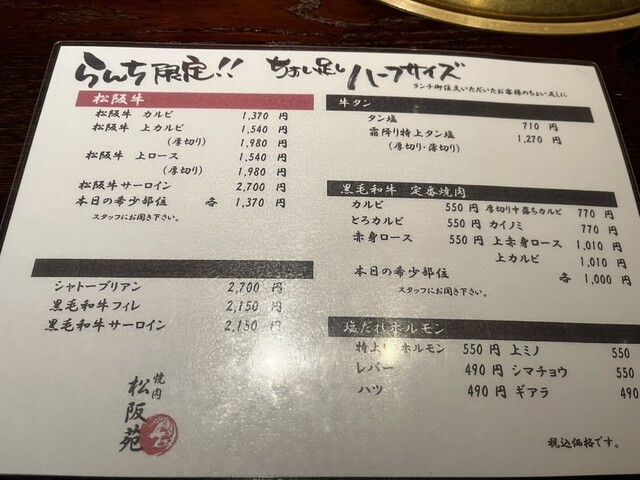 らんち限定!! ちょい足しハーフサイズ
ランチ御注文いただいたお客様のちょい足しに
松阪牛
松阪牛 カルビ 1,370 円
松阪牛 上カルビ 1,540 円
(厚切り) 1,980 円
松阪牛 上ロース 1,540 円
(厚切り) 1,980 円
松阪牛サーロイン 2,700 円
本日の希少部位 各 1,370 円
スタッフにお聞き下さい。
シャトーブリアン 2,700 円
黒毛和牛フィレ 2,150 円
黒毛和牛サーロイン 2,150 円
焼肉
松阪苑
牛タン
タン塩 710 円
霜降り特上タン塩 1,270 円
(厚切り・薄切り)
黒毛和牛 定番焼肉
カルビ 550 円 厚切り中落ちカルビ 770 円
とろカルビ 550 円 カイノミ 770 円
赤身ロース 550 円 上赤身ロース 1,010 円
上カルビ 1,010 円
本日の希少部位 各 1,000 円
スタッフにお聞き下さい。
塩だれホルモン
特上 ホルモン 550 円 上ミノ 550
レバー 490 円 シマチョウ 550
ハツ 490 円 ギアラ 490
税込価格です。